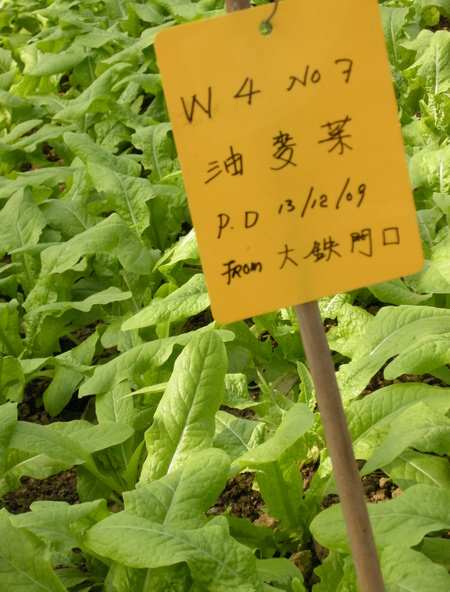 W 4 No 7
油麦菜
P.D 13/12/09
From 大鉄門口